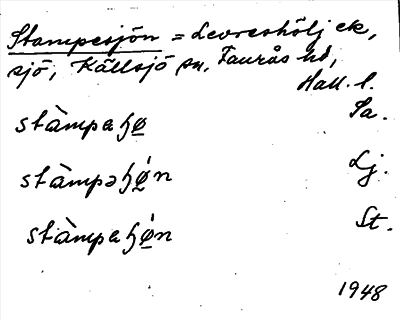 Stampesjön = Levreshölj ek,
sjö, Källsjö sn, Faurås hd,
Hall. l.
stàmpɐɧø̱ Sa.
stàmpəɧǿ̱n Lj.
stàmpɐɧǿ̱n St.
1948